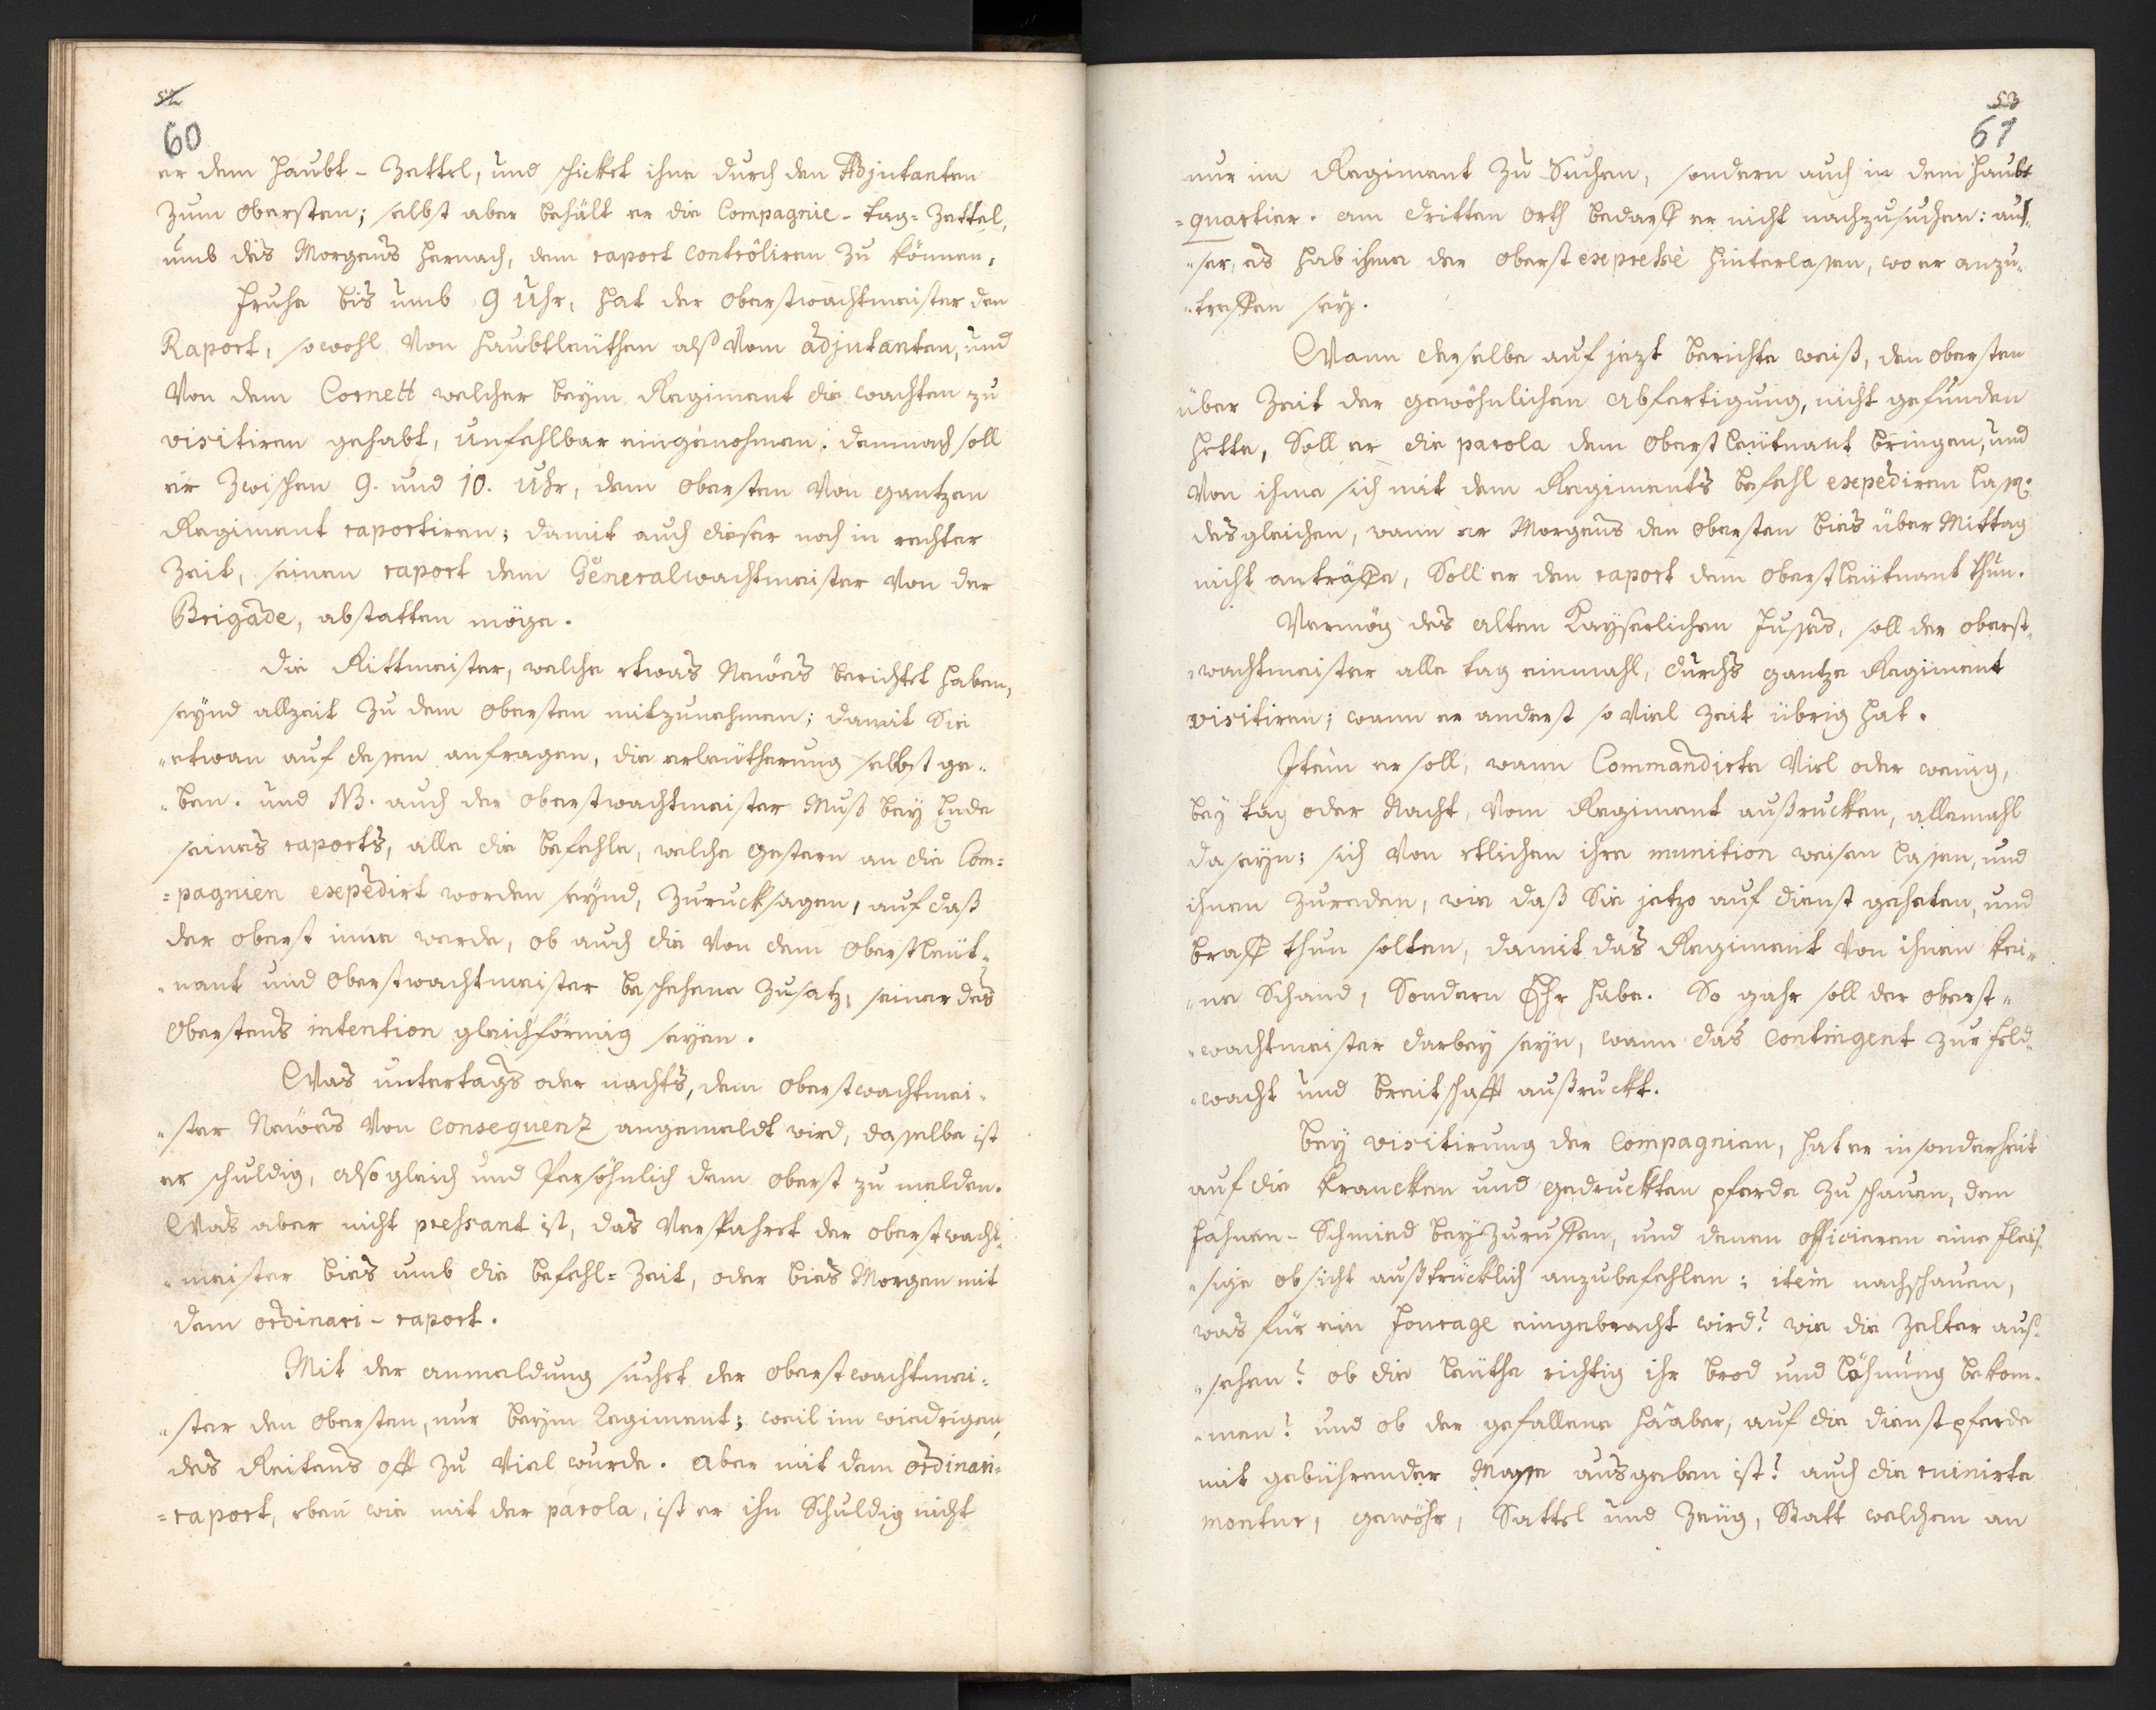 52
60
er dem Haubt-Zettel, und schicket ihne durch den Adjutanten
zum Obersten; selbst aber behält er die Compagnie-tag-Zettel,
umb des Morgens hernach, dem raport controliren zu können.
Fruhe bis umb 9 Uhr, hat der Oberstwachtmeister den
Raport, sowohl von Haubtleuthen alß vom adjutanten, und
von dem Cornett welcher beym Regiment die wachten zu
visitiren gehabt, unfehlbar eingenohmen: demnach soll
er zwischen 9. und 10. Uhr, dem Obersten von gantzen
Regiment raportiren; damit auch dieser noch in rechter
Zeit, seinen raport dem Generalwachtmeister von der
Brigade, abstatten möge.
Die Rittmeister, welche etwas Neües berichtet haben,
seynd allzeit zu dem Obersten mitzunehmen; damit Sie
"etwan auf dessen anfragen, die erleütherung selbst ge-
"ben. und NB. auch der Oberstwachtmeister Muß bey Ende
seines raports, alle die befehle, welche gestern an die Com=
=pagnien expedirt worden seynd, zurucksagen, auf daß
der Oberst inne werde, ob auch die von dem Oberstleüt-
"nant und Oberstwachtmeister beschehene Zusatz, seiner des
Obersten's intention gleichförmig seyen.
Was untertags oder nachts, dem Oberstwachtmei-
"ster Neües von consequenz angemeldt wird, dasselbe ist
er schuldig, alsogleich und Persöhnlich dem Oberst zu melden.
Was aber nicht pressant ist, das versparet der Oberstwacht-
"meister bies umb die befehl-Zeit, oder bies Morgen mit
dem ordinari-raport.
Mit der anmeldung suchet der Oberstwachtmei-
"ster den Obersten, nur beym Regiment; weil im wiedrigen,
des Reitens offt zu viel wurde. Aber mit dem ordinari=
=raport, eben wie mit der parola, ist er ihn Schuldig nicht
53
61
nur im Regiment zu Suchen, sondern auch in dem Haubt
=quartier. am dritten orth bedarff er nicht nachzusuchen: aus-
"ser, es hab ihme der Oberst expresse hinterlassen, wo er anzu-
"treffen sey.
Wann derselbe auf jezt berichte weiß, den Obersten
über Zeit der gewöhnlichen Abfertigung, nicht gefunden
hette, Soll er die parola dem Oberstleütnant bringen, und
von ihme sich mit dem Regiments befehl expediren lassen:
desgleichen, wann er Morgens den Obersten bies über Mittag
nicht anträffe, Soll er den raport dem Oberstleütnant thun.
Vermög des alten Kayserlichen Fusses, soll der Oberst-
"wachtmeister alle tag einmahl, durchs gantze Regiment
visitiren; wann er anderst so viel Zeit übrig hat.
Item er soll, wann Commandirte viel oder wenig,
bey tag oder Nacht, vom Regiment außrucken, allemahl
da seyn; sich von etlichen ihre munition weisen lassen, und
ihnen zureden, wie daß Sie jetzo auf dienst geheten, und
braff thun solten, damit das Regiment von ihnen kei-
"ne Schand, Sondern Ehr habe. So gahr soll der Oberst-
"wachtmeister darbey seyn, wann das contingent zur Feld-
"wacht und breitschafft außruckt.
bey visitirung der Compagnien, hat er insonderheit
auf die krancken und gedruckten pferde zu schauen, den
Fahnen-Schmied beyzuruffen, und denen officieren eine fleis-
"sige obsicht außtrücklich anzubefehlen: item nachschauen,
was für ein Fourage eingebracht wird? wie die Zelter aus-
"sehen? ob die leüthe richtig ihr brod und löhnung bekom-
"men? und ob der gefallene Haaber, auf die dienstpferde
mit gebührender Masse ausgeben ist? auch die ruinirte
montur, gewöhr, Sattel und Zeüg, Statt welchem an